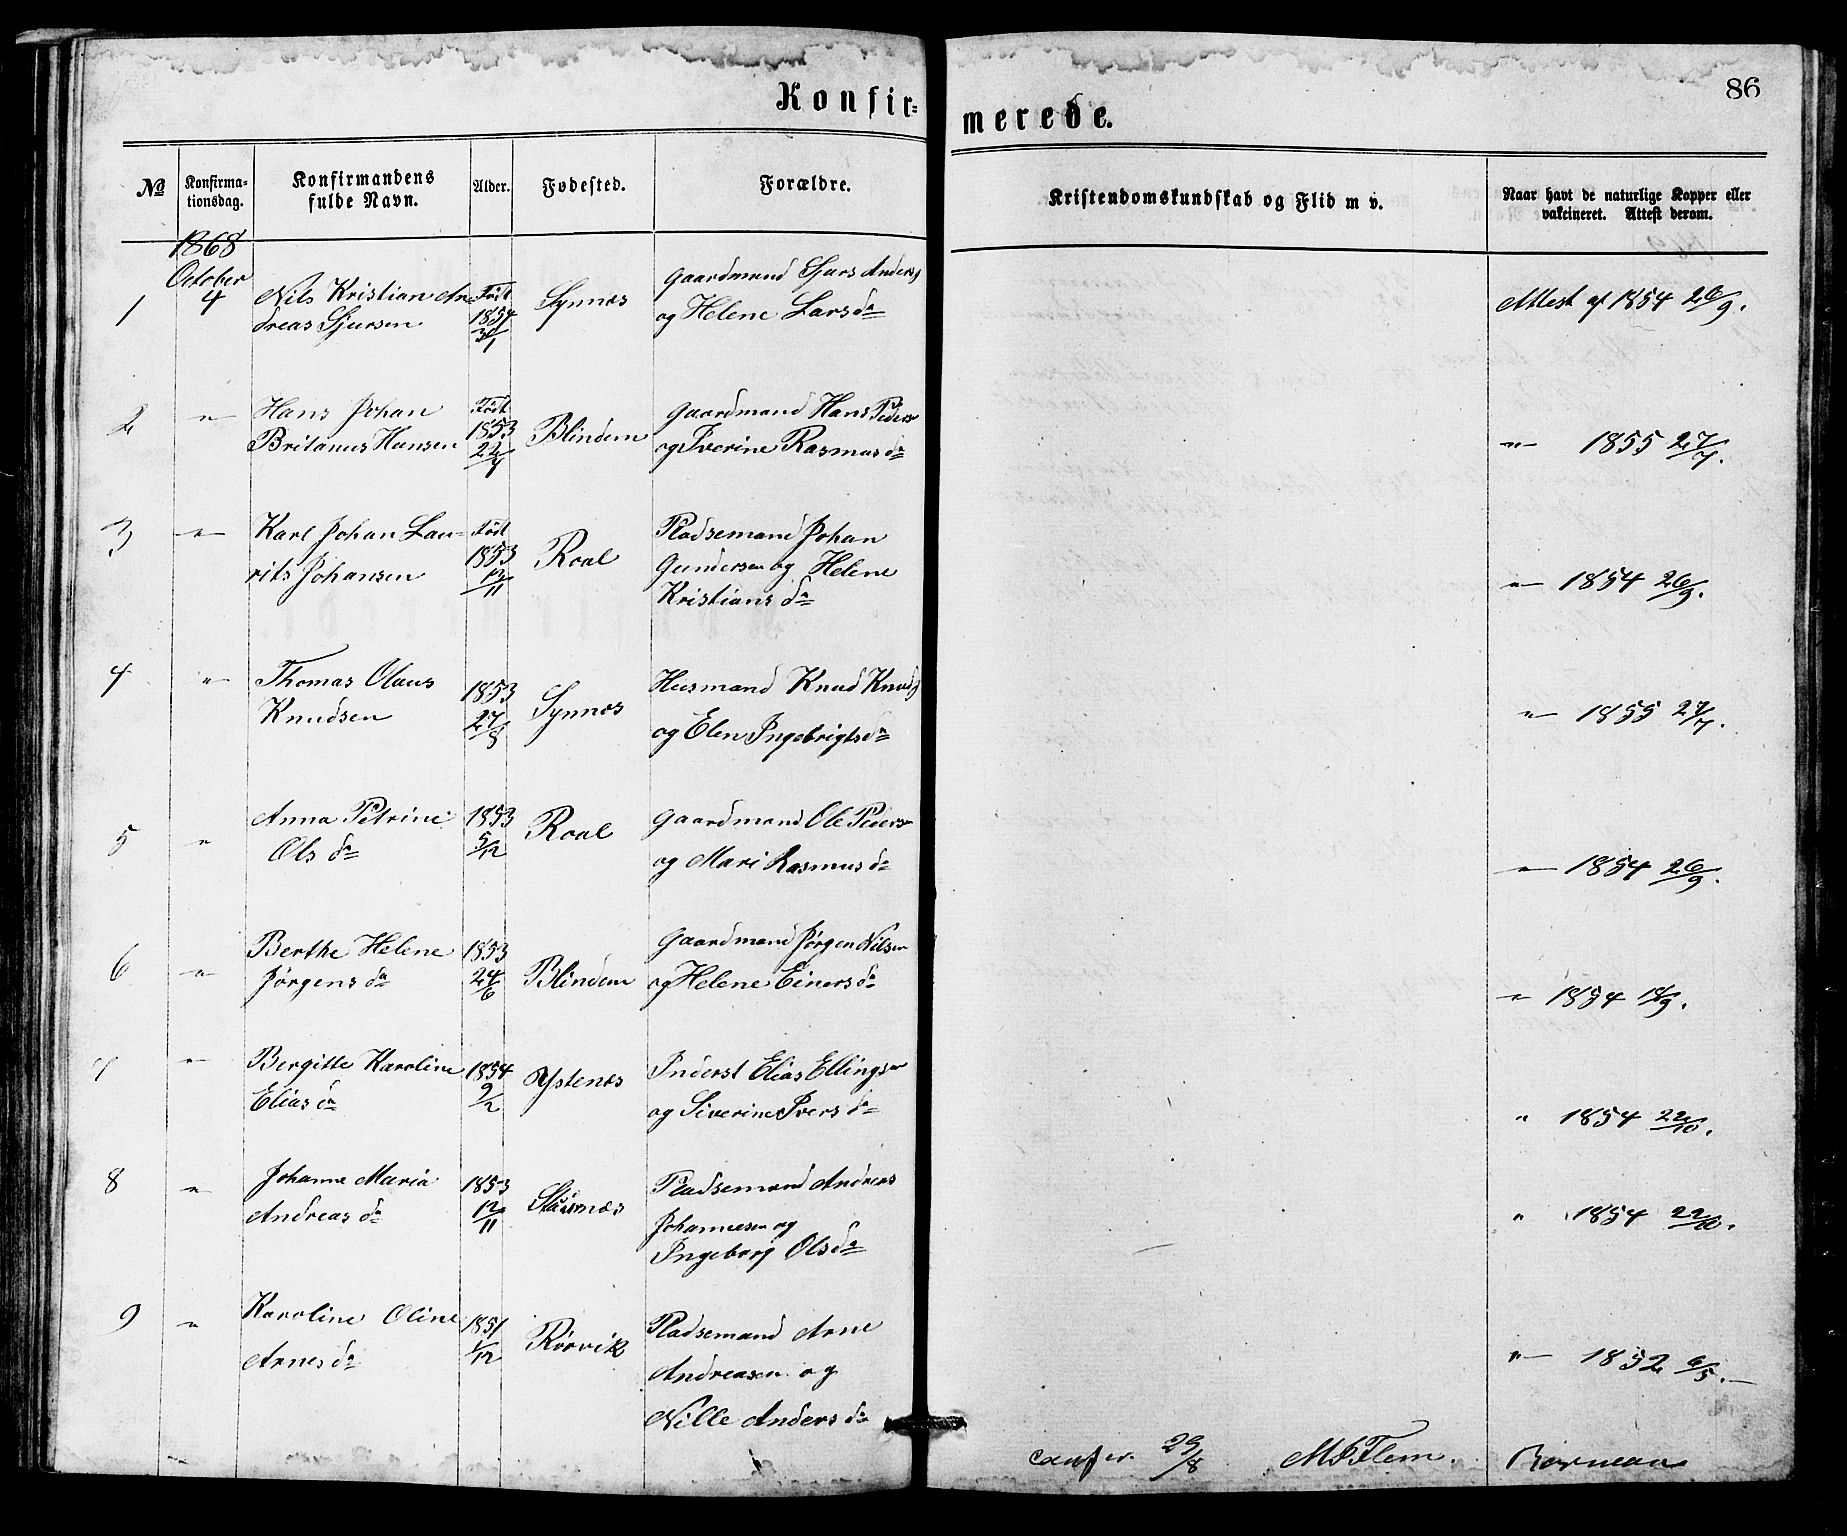 Konfir-
merede.
86
No
Konfirma-
tionsdag.
Konfirmandens
fulde Navn.
Alder.
Fødested.
Forældre.
Kristendomskundskab og Flid m v.
Naar havt de naturlige Kopper eller
vakcineret. Attest derom.
1868
October
1 4 Nils Kristian An
dreas Sjursen
Født
1854
30/1
Synnes
Gaardmand Sjurs Anders
og Helene Larsda
Attest af 1854 26/9.
2 "
Hans Johan
Britanus Hansen
Født
1853
22/4
Blindem
Gaardmand Hans Peders
og Iverine Rasmusda
" 1855 27/7.
3 "
Karl Johan Lau-
rits Johansen
Født
1853
12/11
Roal
Pladsemand Johan
Gundersen og Helene
Kristiansda
" 1854 26/9.
4 "
Thomas Olaus
Knudsen
1853
27/8
Synnes
Husmand Knud Knuds
og Elen Ingebrigtsda
" 1855 27/7.
5 "
Anna Petrine
Olsda
1853
5/12
Roal
Gaardmand Ole Peders
og Mari Rasmusda
" 1854 26/9.
6 "
Berthe Helene
Jørgensda
1853
24/6
Blindem
Gaardmand Jørgen Nilsen
og Helene Einersda
" 1854 19/9.
7 "
Bergitte Karoline
Eliasda
1854
9/2
Ystenes
Inderst Elias Ellings
og Siverine Iversda
" 1854 22/10.
8 "
Johanne Maria
Andreasda
1853
12/11
Pladsemand Andreas
Johannesen og
Ingeborg Olsda
" 1854 22/10.
9 "
Karoline Oline
Arnesda
1851
1/12
Rørvik
Pladsemand Arne
Andreasen og
Nille Andersda
" 1852 6/5.
confer. 29/8 M S Flem.